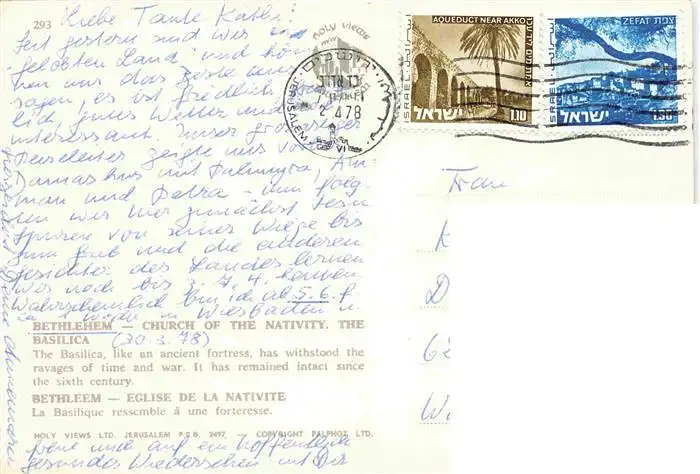 293
Liebe Tante Käthi!
Seit gestern sind wir im
"gelobten Land" und kön-
nen nur das Beste
sagen, es ist friedlich,
lich gutes Wetter und
interessant. Unser großartiger
Reiseleiter zeigte uns vor
Damaskus mit Palmyra, Am-
man und Petra - nun folg-
en wir hier zunächst Jesu
Spuren von seiner Wiege bis
zum Grab und die anderen
Gesichter des Landes lernen
wir noch bis 7.4. kennen.
Wahrscheinlich bin ich ab 5.6. f.
ca 1 Woche in Wiesbaden u.
BETHLEHEM — CHURCH OF THE NATIVITY. THE
BASILICA (30.3.78)
The Basilica, like an ancient fortress, has withstood the
ravages of time and war. It has remained intact since
the sixth century.
BETHLEEM — EGLISE DE LA NATIVITE
La Basilique ressemble à une forteresse.
HOLY VIEWS LTD. JERUSALEM P.O.B. 2497. COPYRIGHT PALPHOT LTD.
freue mich auf ein hoffentlich
gesundes Wiedersehen mit Dir
HOLY VIEWS
JERUSALEM
ירושלים
2 4 78
AQUEDUCT NEAR AKKO
ISRAEL
ישראל
1.10
ZEFAT צפת
ISRAEL
ישראל
1.30
Frau
K
D
62
W